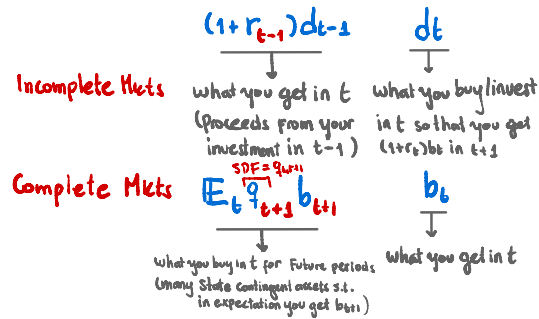 (1+r_{t-1})d_{t-1} dt
Incomplete Mkts
what you get in t
(proceeds from your
investment in t-1)
what you buy/invest
in t so that you get
(1+r_t)b_t in t+1
SDF = q_{t,t+1}
Complete Mkts
𝔼_t q_{t+1} b_{t+1} b_t
what you buy in t for future periods
(many state contingent assets s.t.
in expectation you get b_{t+1})
what you get in t